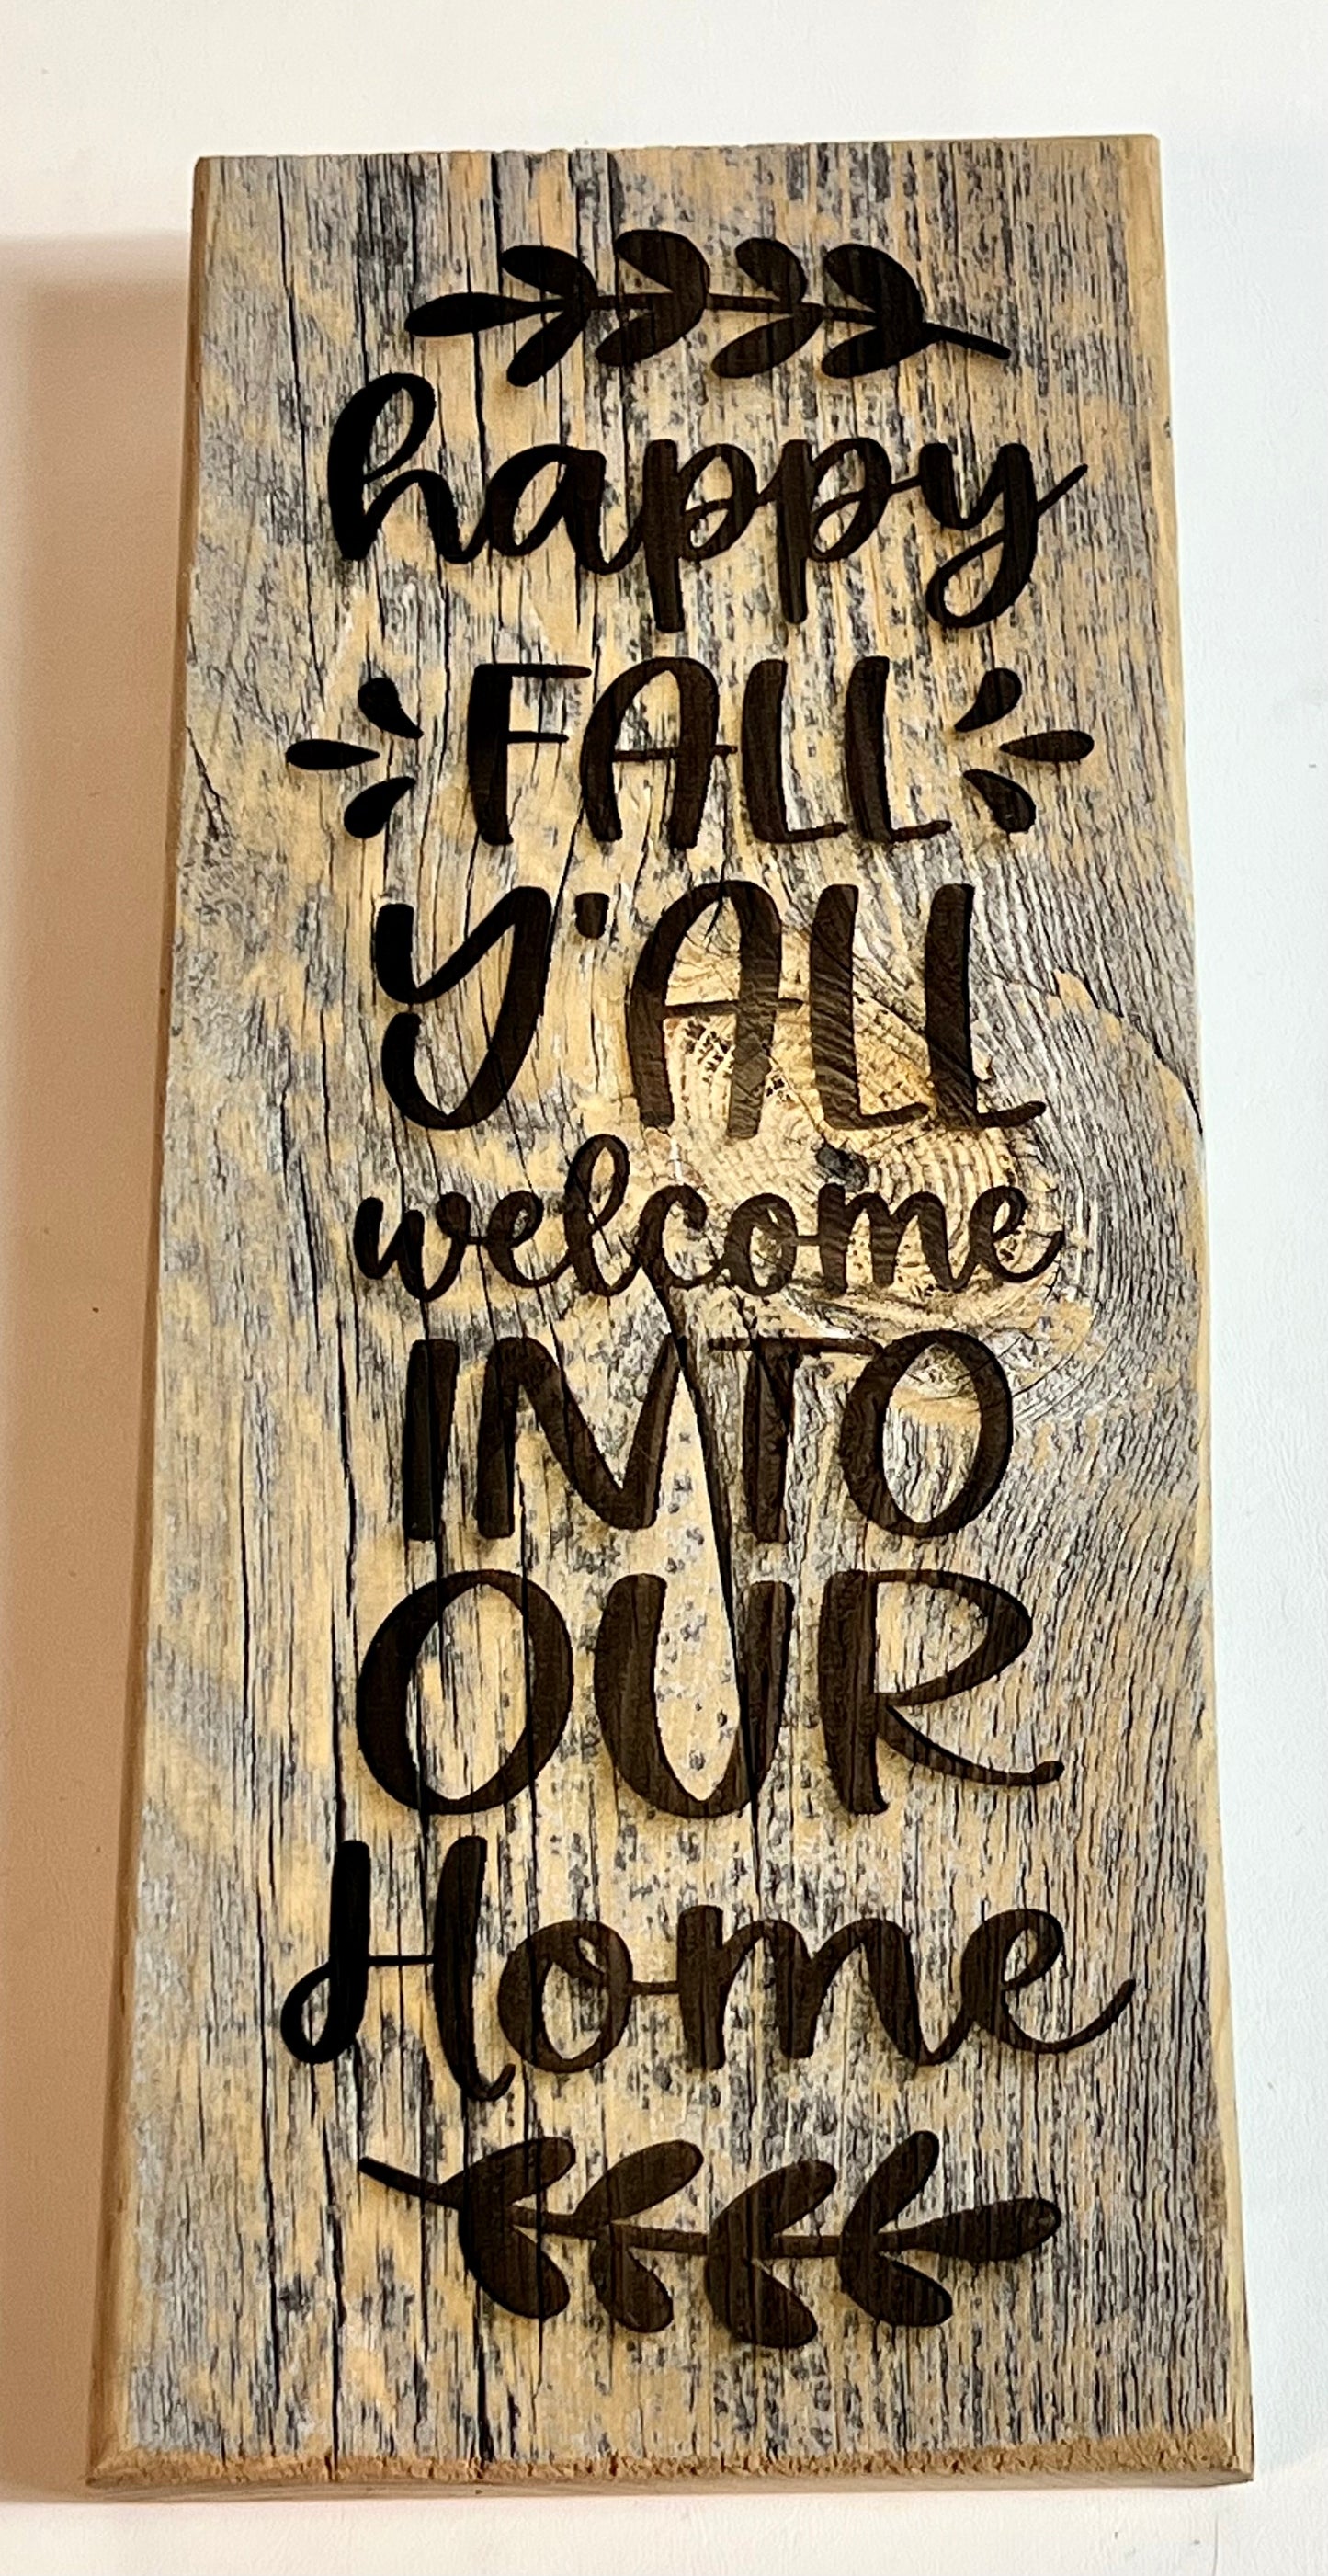 happy
FALL
Y'ALL
welcome
INTO
OUR
Home